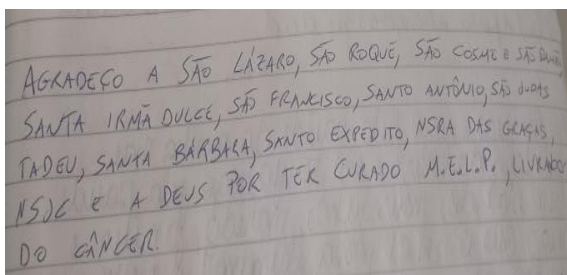 AGRADEÇO A SÃO LÁZARO, SÃO ROQUE, SÃO COSME E SÃO DAMIÃO,
SANTA IRMÃ DULCE, SÃO FRANCISCO, SANTO ANTÔNIO, SÃO JUDAS
TADEU, SANTA BÁRBARA, SANTO EXPEDITO, NSRA DAS GRAÇAS,
NSJC E A DEUS POR TER CURADO M.E.L.P., LIVRANDO
DO CÂNCER.